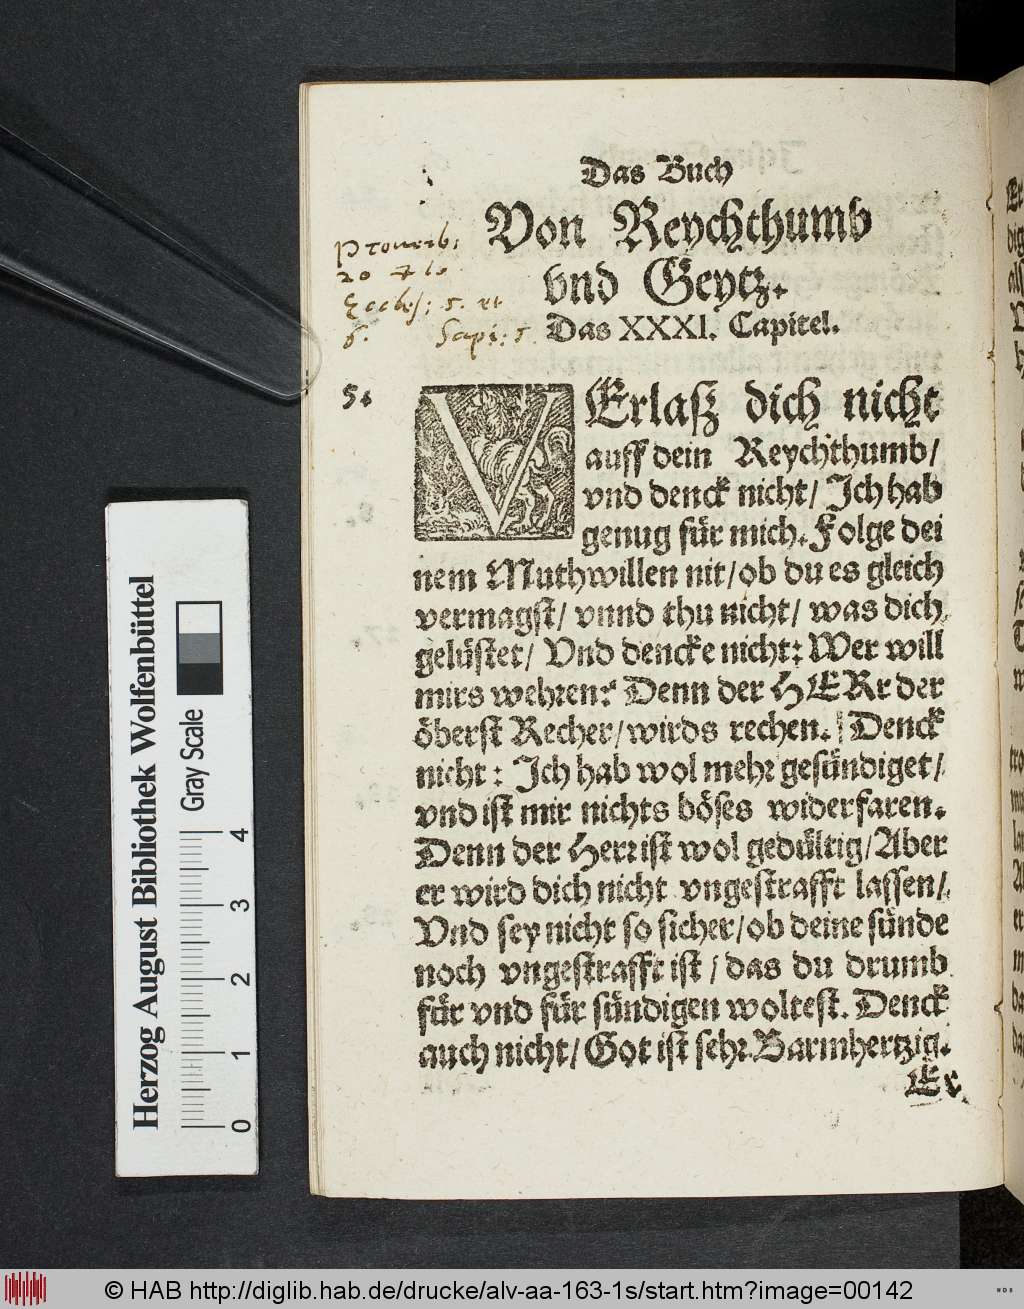 Das Buch
Von Reychthumb
vnd Geytz.
Das XXXI. Capitel.
Prouerb:
20
Eccles: 5. et
6. Sapi: 5.
5.
VErlaſz dich nicht
auff dein Reychthumb/
vnd denck nicht/ Ich hab
genug für mich. Folge dei
nem Muthwillen nit/ ob du es gleich
vermagſt/ vnnd thu nicht/ was dich
gelüſtet/ Vnd dencke nicht: Wer will
mirs wehren? Denn der HERr der
öberſt Recher/ wirds rechen. Denck
nicht: Ich hab wol mehr geſündiget/
vnd iſt mir nichts böſes widerfaren.
Denn der Herr iſt wol gedültig/ Aber
er wird dich nicht vngeſtrafft laſſen/
Vnd ſey nicht ſo ſicher/ ob deine ſünde
noch vngeſtrafft iſt/ das du drumb
für vnd für ſündigen wolteſt. Denck
auch nicht/ Got iſt ſehr Barmhertzig.
Er
Herzog August Bibliothek Wolfenbüttel
Gray Scale
0 1 2 3 4
© HAB http://diglib.hab.de/drucke/alv-aa-163-1s/start.htm?image=00142